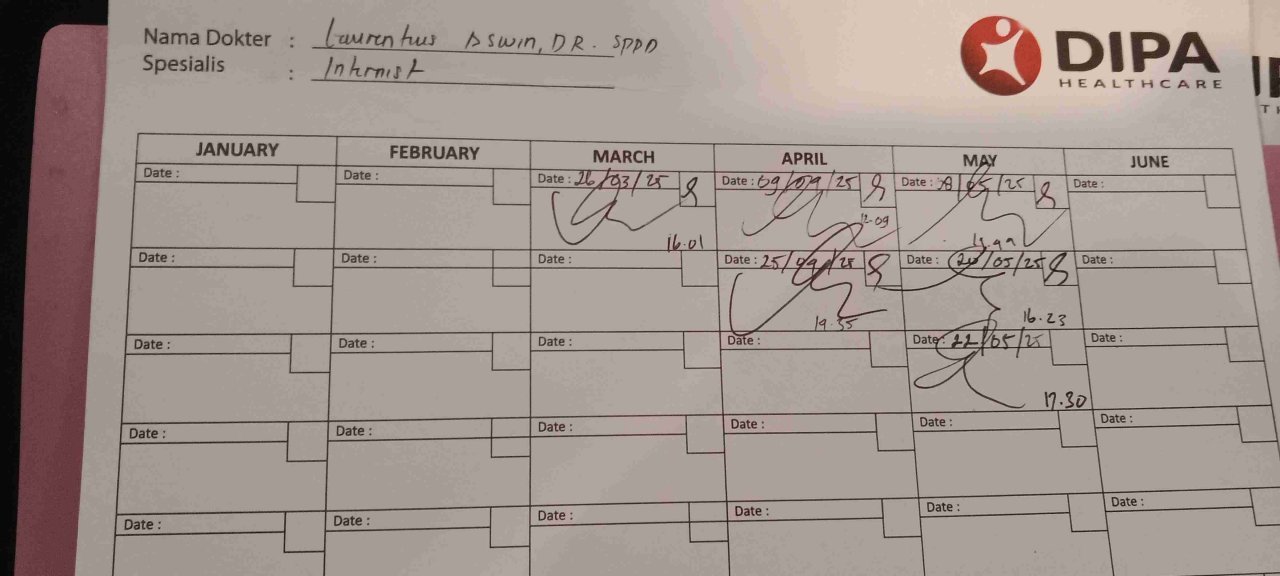 Nama Dokter : Laurentius Aswin, DR. SPPD
Spesialis : Internist
DIPA
HEALTHCARE
JANUARY FEBRUARY MARCH APRIL MAY JUNE
Date : Date : Date : 26/03/25 Date : 09/04/25 Date : 08/05/25 Date :
16.01 12.09
Date : Date : Date : Date : 25/04/25 Date : 20/05/25 Date :
19.35 16.23
Date : Date : Date : Date : Date : 22/05/25 Date :
17.30
Date : Date : Date : Date : Date : Date :
Date : Date : Date : Date : Date : Date :